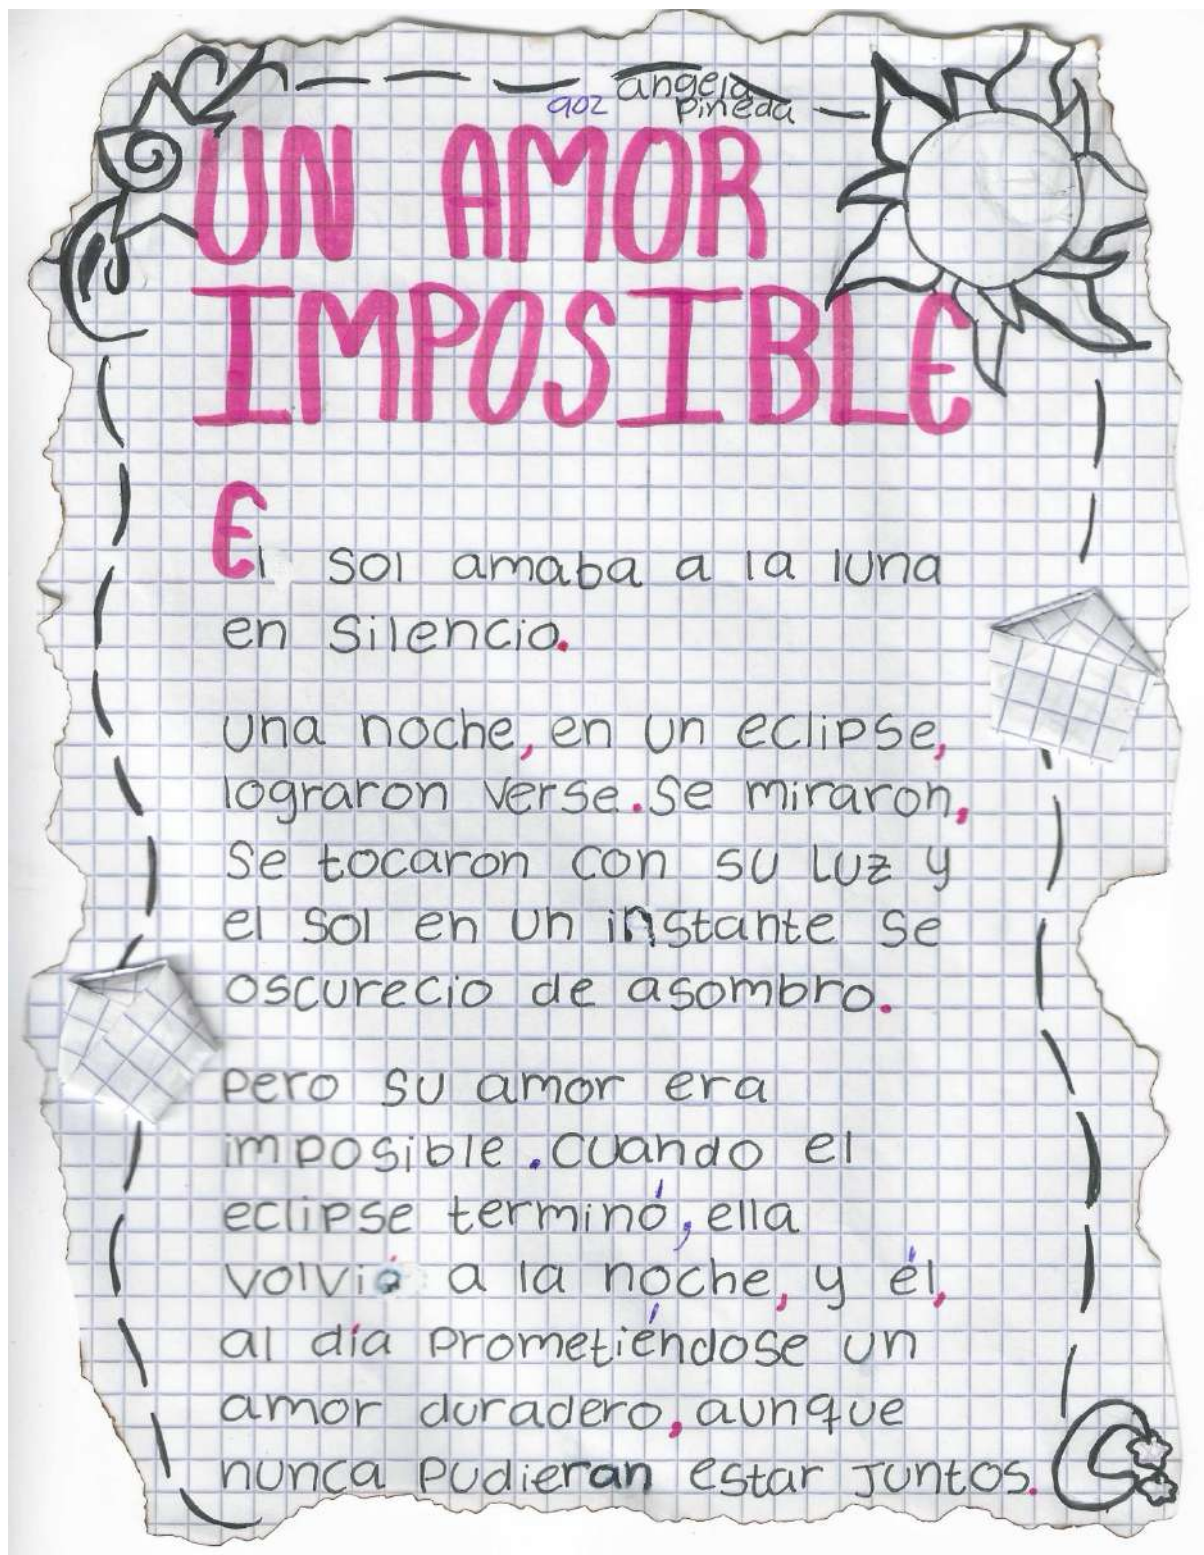 angela
902 pineda
UN AMOR
IMPOSIBLE
El sol amaba a la luna
en silencio.
una noche, en un eclipse,
lograron verse. Se miraron,
se tocaron con su luz y
el sol en un instante se
oscurecio de asombro.
pero su amor era
imposible. Cuando el
eclipse terminó, ella
volvió a la noche, y él,
al día prometiéndose un
amor duradero, aunque
nunca pudieran estar juntos.